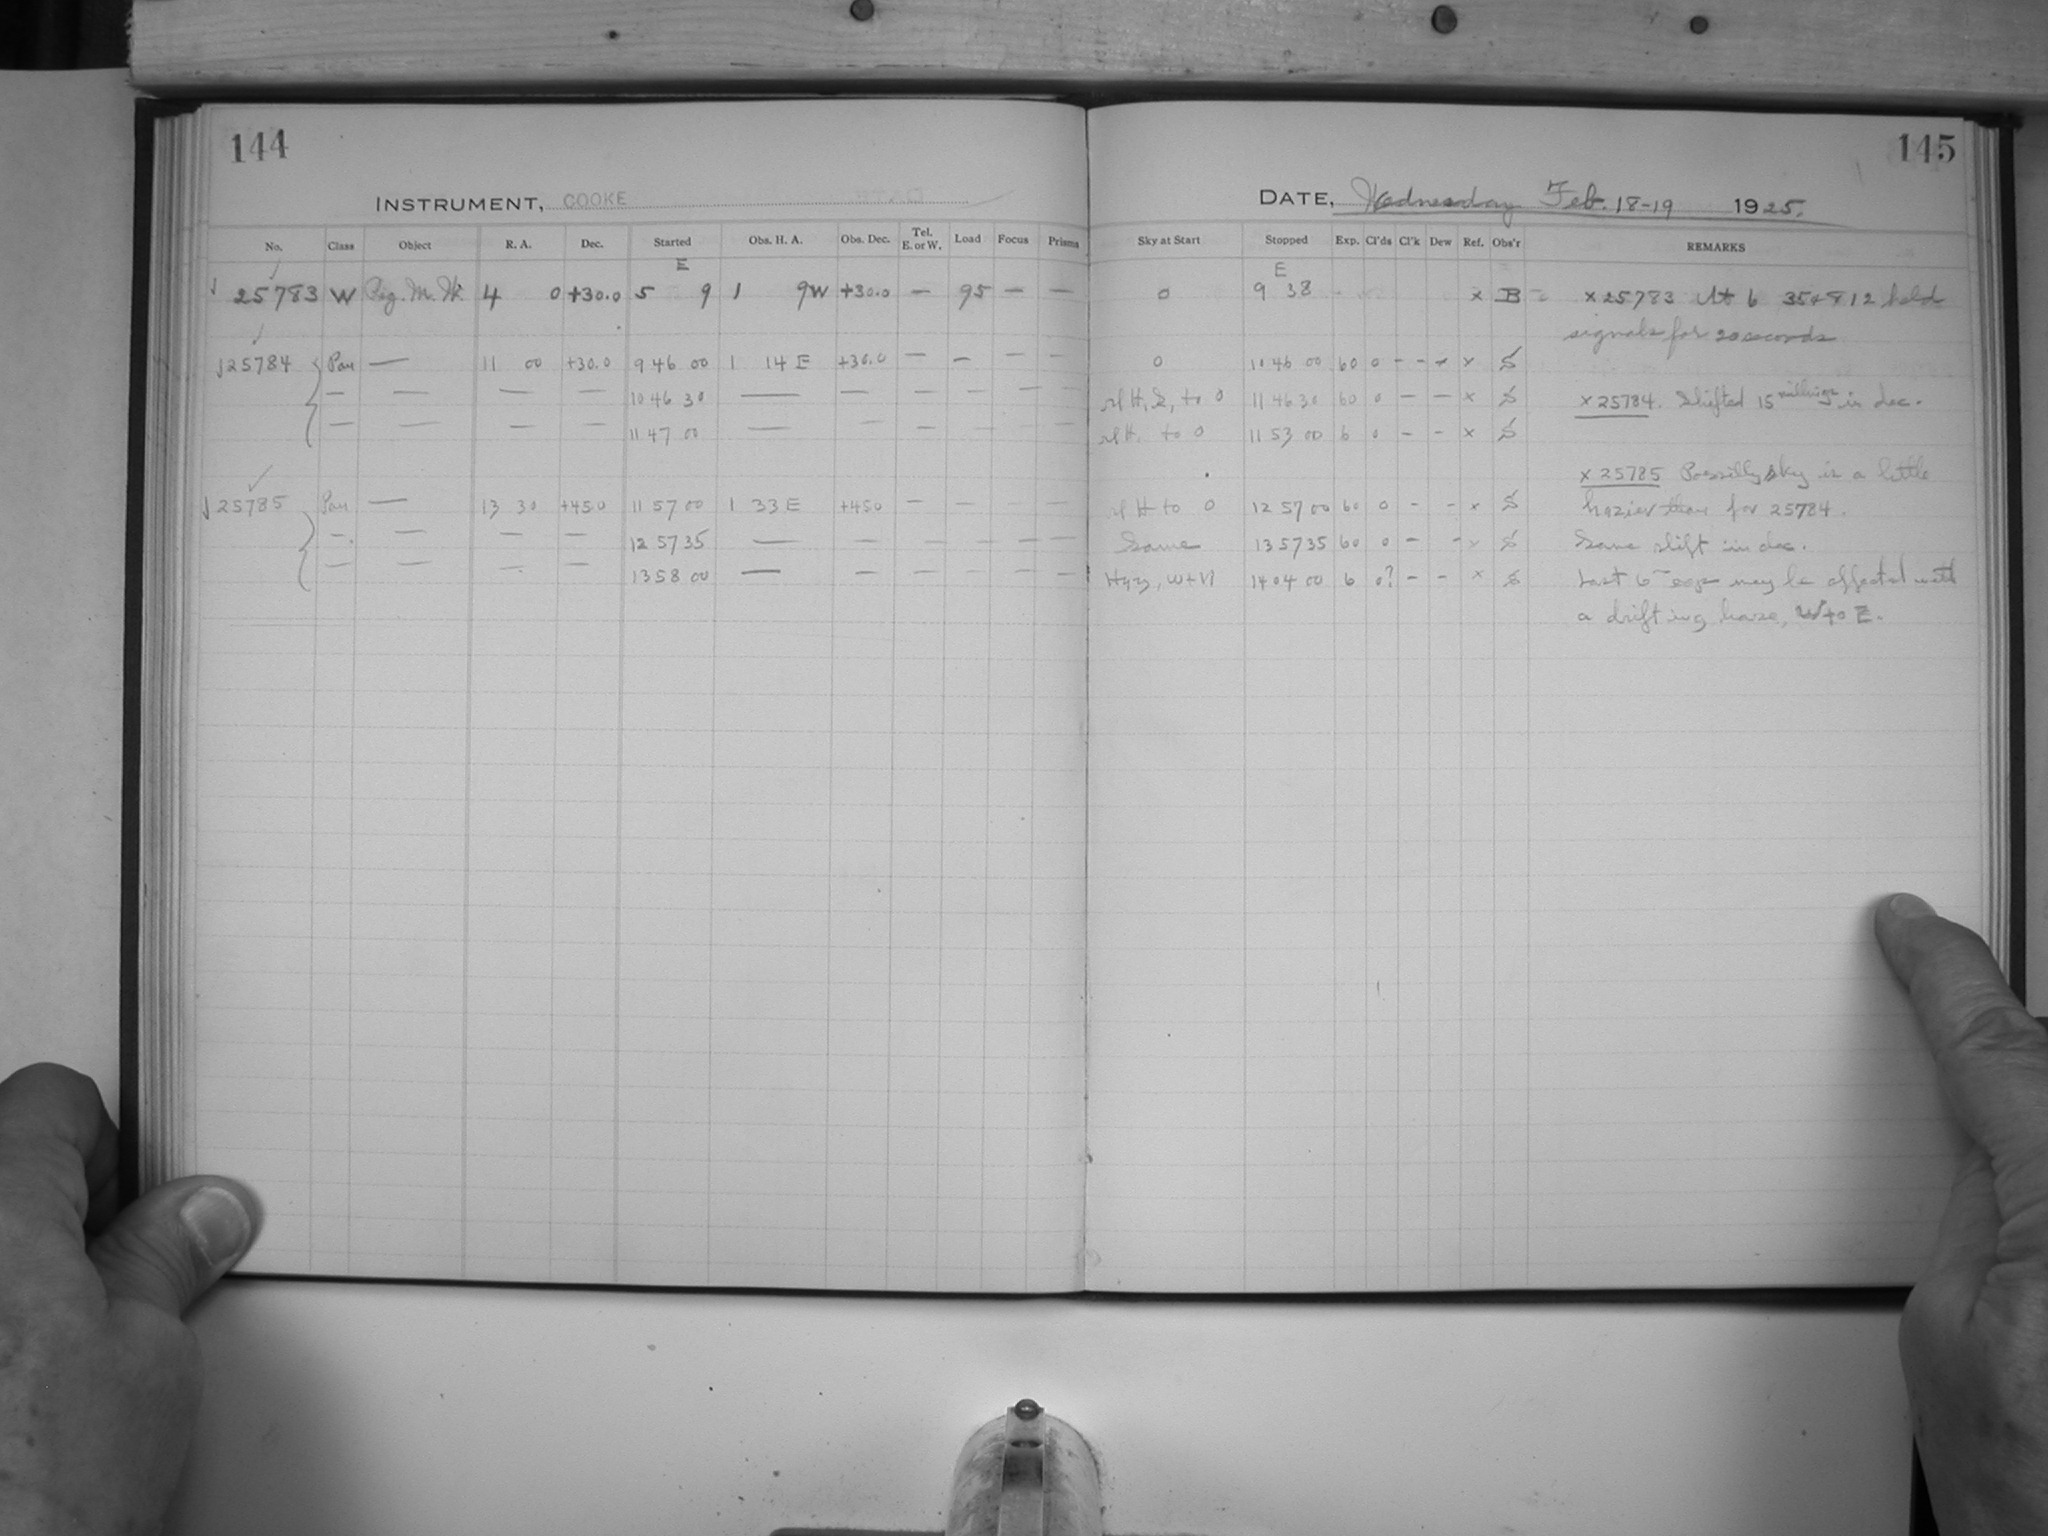 144
145
INSTRUMENT, COOKE
DATE, Wednesday Feb. 18-19 1925.
No. Class Object R. A. Dec. Started Obs. H. A. Obs. Dec. Tel. E. or W. Load Focus Prisms Sky at Start Stopped Exp. Cl'ds Cl'k Dew Ref. Obs'r REMARKS
E E
25783 W 4 0 +30.0 5 9 1 9W +30.0 — 95 — — 0 9 38 x B x 25783 At 6 35 + 8 12 held
signals for 20 seconds
25784 Par — 11 00 +30.0 9 46 00 1 14 E +30.0 — — — — 0 10 46 00 60 0 — — — x S
— — — — 10 46 30 — — — — — — sl H, to 0 11 46 30 60 0 — — x S x 25784. Shifted 15 in dec.
— — — — 11 47 00 — — — — — — sl H, to 0 11 53 00 6 0 — — x S
x 25785 Possibly sky is a little
25785 Par — 13 30 +45.0 11 57 00 1 33 E +45.0 — — — — sl H to 0 12 57 00 60 0 — — x S hazier than for 25784.
— — — — 12 57 35 — — — — — — Same 13 57 35 60 0 — — x S Same shift in dec.
— — — — 13 58 00 — — — — — — Hazy, W+N 14 04 00 6 0? — — x S Last 6 exp may be affected with
a drifting haze, W to E.